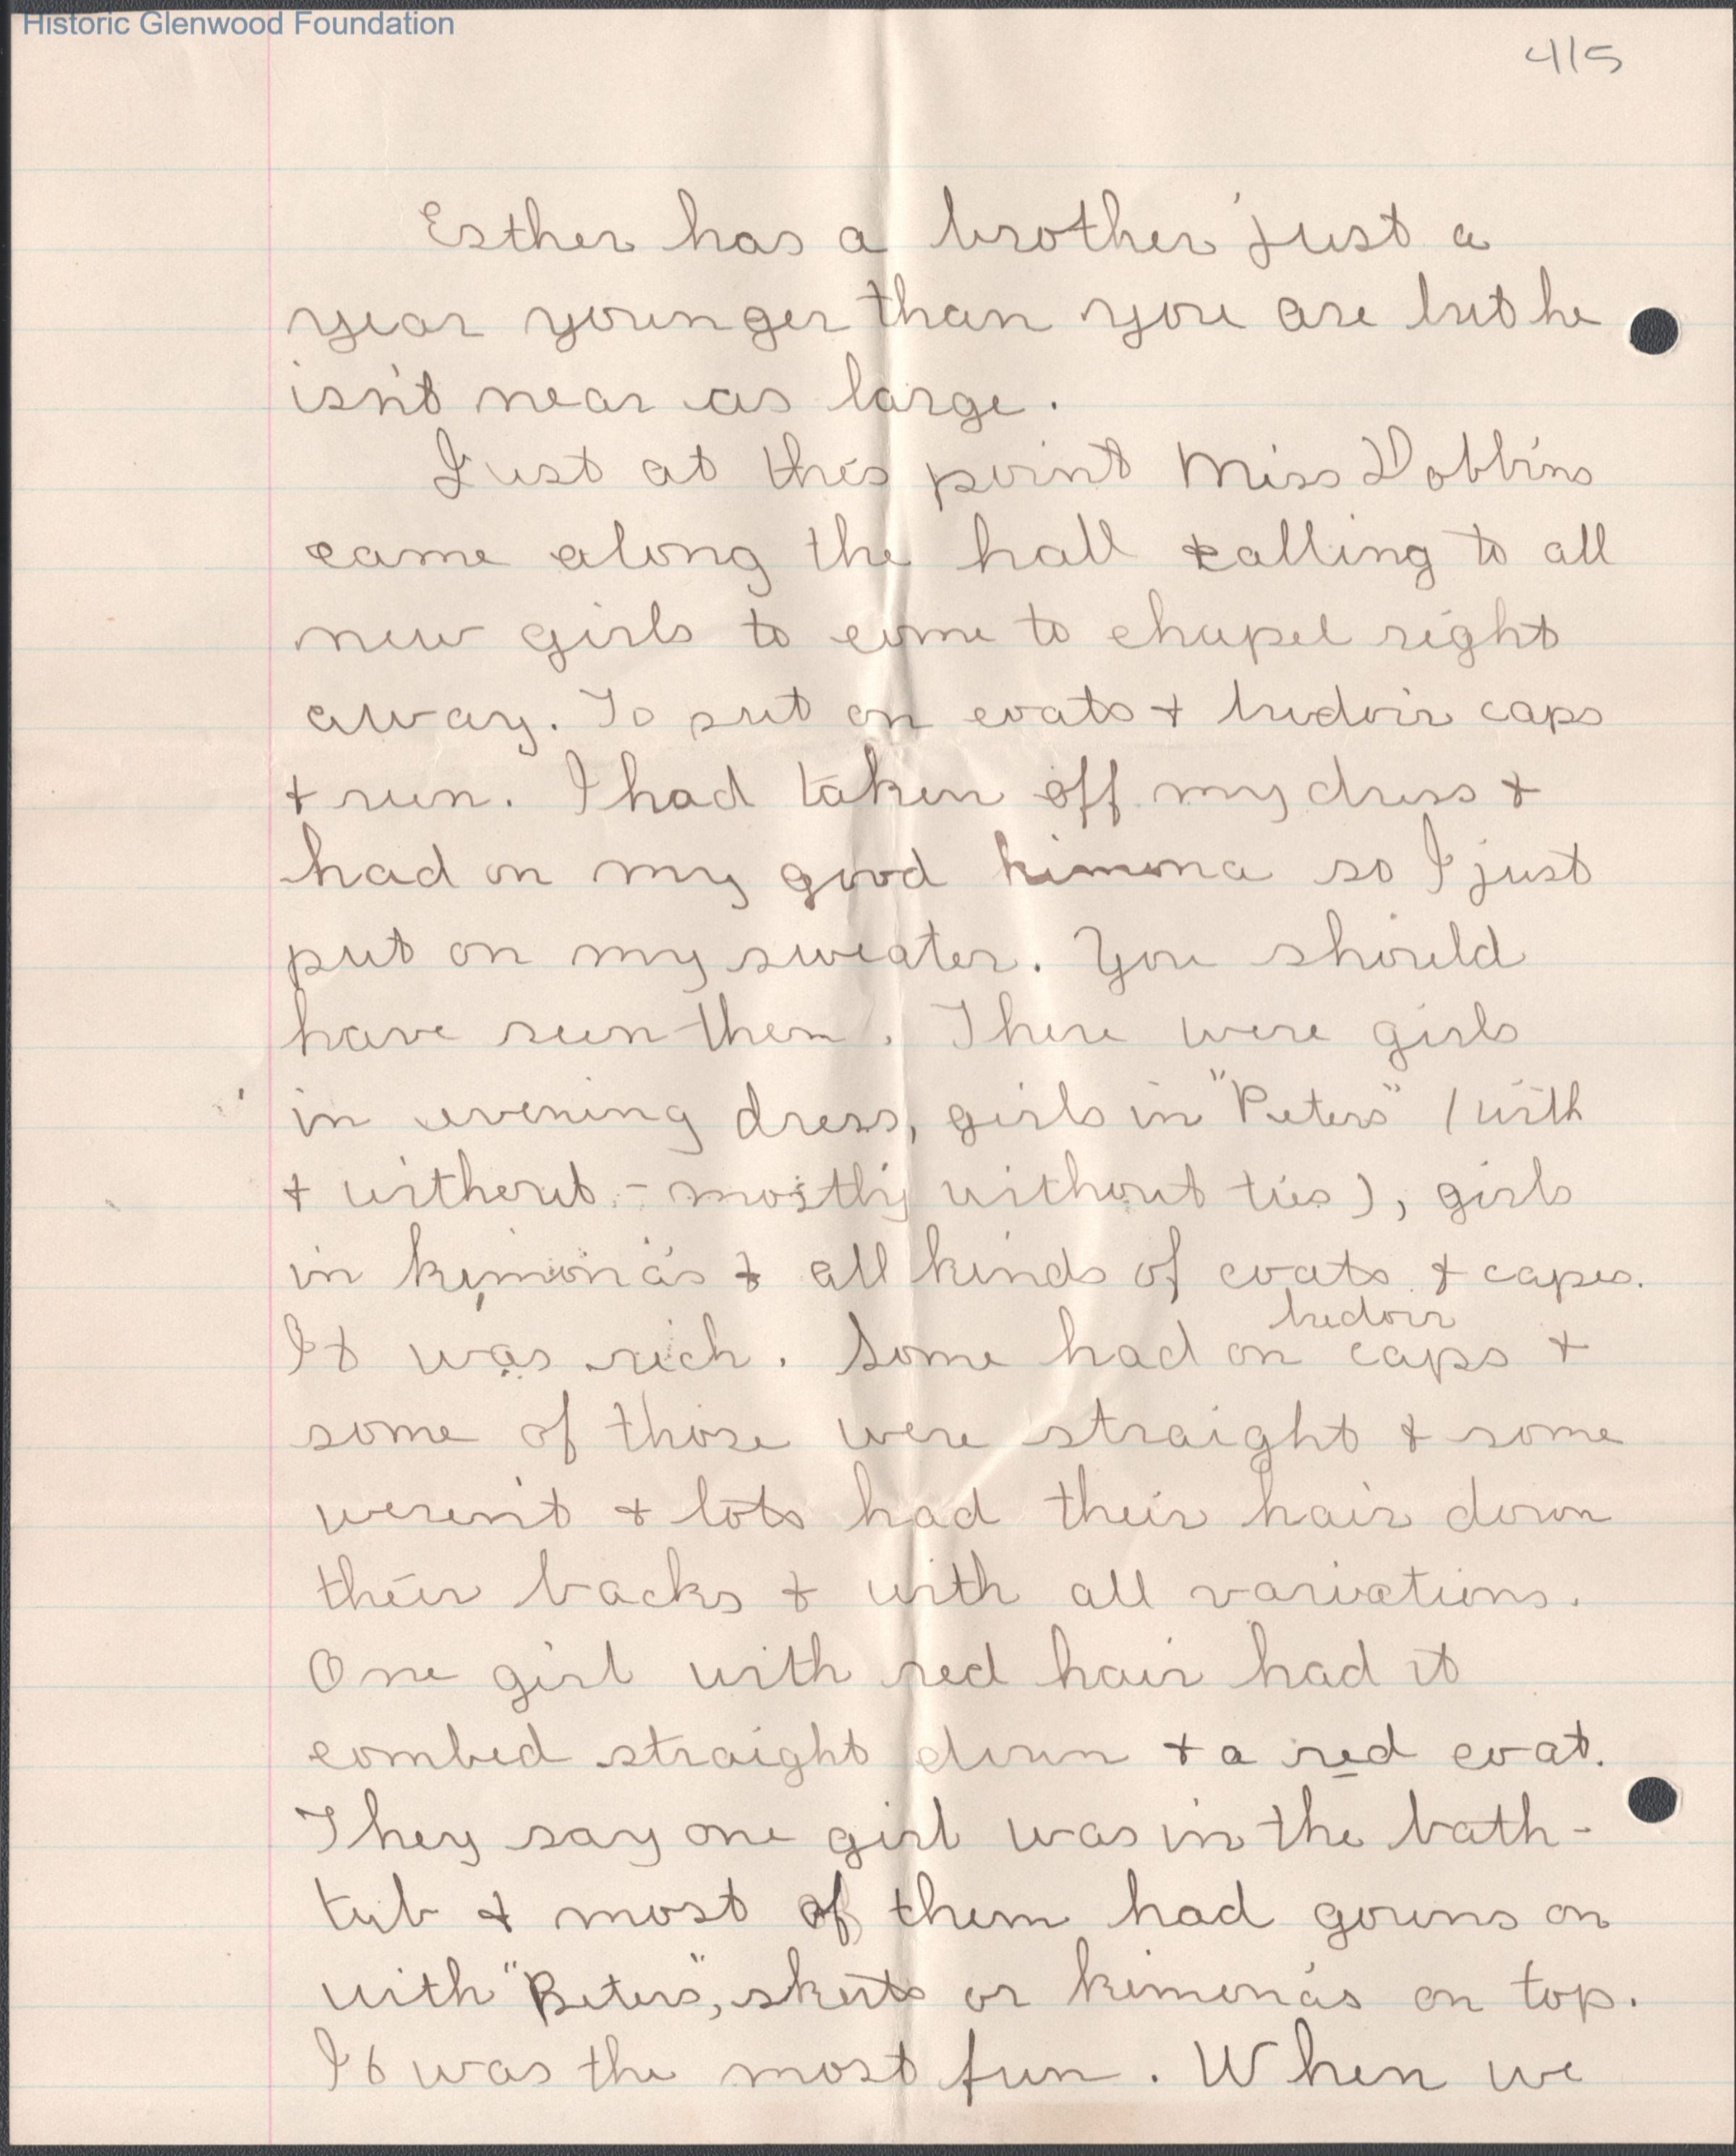 Historic Glenwood Foundation
415
Esther has a brother just a
year younger than you are but he
isn't near as large.
Just at this point Miss Dobbins
came along the hall calling to all
new girls to come to chapel right
away. To put on coats + budoir caps
+ run. I had taken off my dress +
had on my good kimona so I just
put on my sweater. You should
have seen them. There were girls
in evening dress, girls in "Peters" (with
+ without - mostly without ties), girls
in kimona's + all kinds of coats + capes.
budoir
It was rich. Some had on caps +
some of those were straight + some
weren't + lots had their hair down
their backs + with all variations.
One girl with red hair had it
combed straight down + a red coat.
They say one girl was in the bath-
tub + most of them had gowns on
with "Peters", skirts or kimona's on top.
It was the most fun. When we